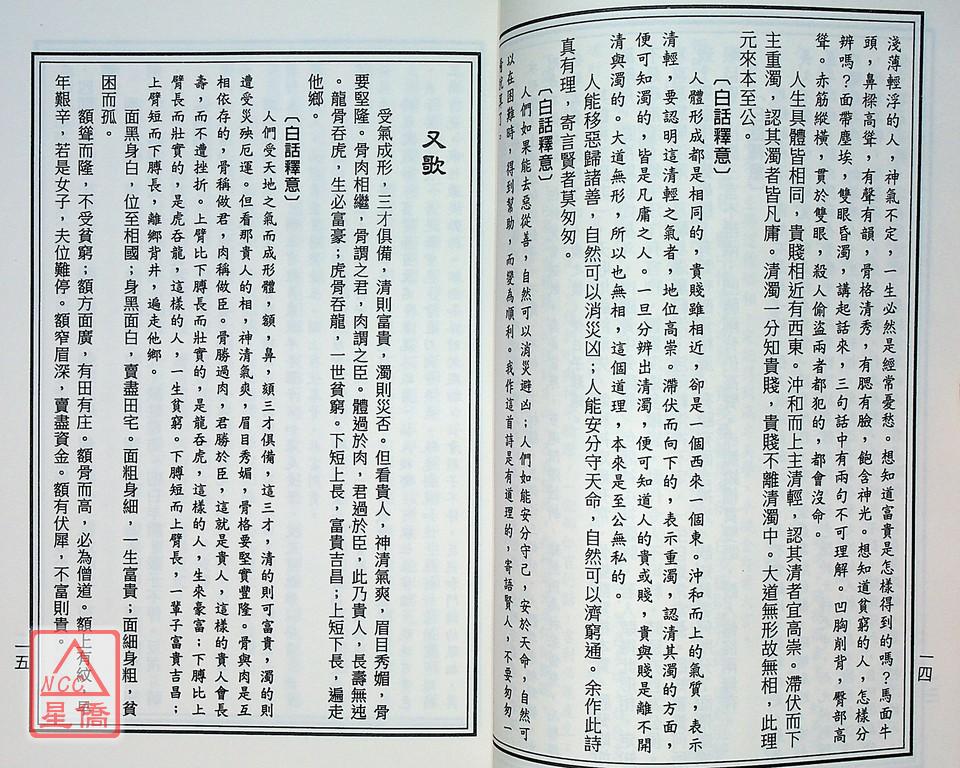 淺薄輕浮的人，神氣不定，一生必然是經常憂愁。想知道富貴是怎樣得到的嗎？馬面牛
頭，鼻樑高聳，有聲有韻，骨格清秀，有腮有臉，飽含神光。想知道貧窮的人，怎樣分
辨嗎？面帶塵埃，雙眼昏濁，講起話來，三句話中有兩句不可理解。凹胸削背，臀部高
聳。赤筋縱橫，貫於雙眼，殺人偷盜兩者都犯的，都會沒命。
人生具體皆相同，貴賤相近有西東。沖和而上主清輕，認其清者宜高崇。滯伏而下
主重濁，認其濁者皆凡庸。清濁一分知貴賤，貴賤不離清濁中。大道無形故無相，此理
元來本至公。
〔白話釋意〕
人體形成都是相同的，貴賤雖相近，卻是一個西來一個東。沖和而上的氣質，表示
清輕，要認明這清輕之氣者，地位高崇。滯伏而向下的，表示重濁，認清其濁的方面，
便可知濁的，皆是凡庸之人。一旦分辨出清濁，便可知道人的貴或賤，貴與賤是離不開
清與濁的。大道無形，所以也無相，這個道理，本來是至公無私的。
人能移惡歸諸善，自然可以消災凶；人能安分守天命，自然可以濟窮通。余作此詩
真有理，寄言賢者莫匆匆。
〔白話釋意〕
人們如果能去惡從善，自然可以消災避凶；人們如能安分守己，安於天命，自然可
以在困難時，得到幫助，而變為順利。我作這首詩是有道理的，寄語賢人，不要匆匆一
一四
又歌
受氣成形，三才俱備，清則富貴，濁則災否。但看貴人，神清氣爽，眉目秀媚，骨
要堅隆。骨肉相繼，骨謂之君，肉謂之臣。體過於肉，君過於臣，此乃貴人，長壽無迍
。龍骨吞虎，生必富豪；虎骨吞龍，一世貧窮。下短上長，富貴吉昌；上短下長，遍走
他鄉。
〔白話釋意〕
人們受天地之氣而成形體，額，鼻，頦三才俱備，這三才，清的則可富貴，濁的則
遭受災殃厄運。但看那貴人的相，神清氣爽，眉目秀媚，骨格要堅實豐隆。骨與肉是互
相依存的，骨稱做君，肉稱做臣。骨勝過肉，君勝於臣，這就是貴人，這樣的貴人會長
壽，而不遭挫折。上臂比下膊長而壯實的，是龍吞虎，這樣的人，生來豪富；下膊比上
臂長而壯實的，是虎吞龍，這樣的人，一生貧窮。下膊短而上臂長，一輩子富貴吉昌；
上臂短而下膊長，離鄉背井，遍走他鄉。
面黑身白，位至相國；身黑面白，賣盡田宅。面粗身細，一生富貴；面細身粗，貧
困而孤。
額聳而隆，不受貧窮；額方面廣，有田有庄。額骨而高，必為僧道。額上有紋，早
年艱辛，若是女子，夫位難停。額窄眉深，賣盡資金。額有伏犀，不富則貴。
一五
NCC
星僑